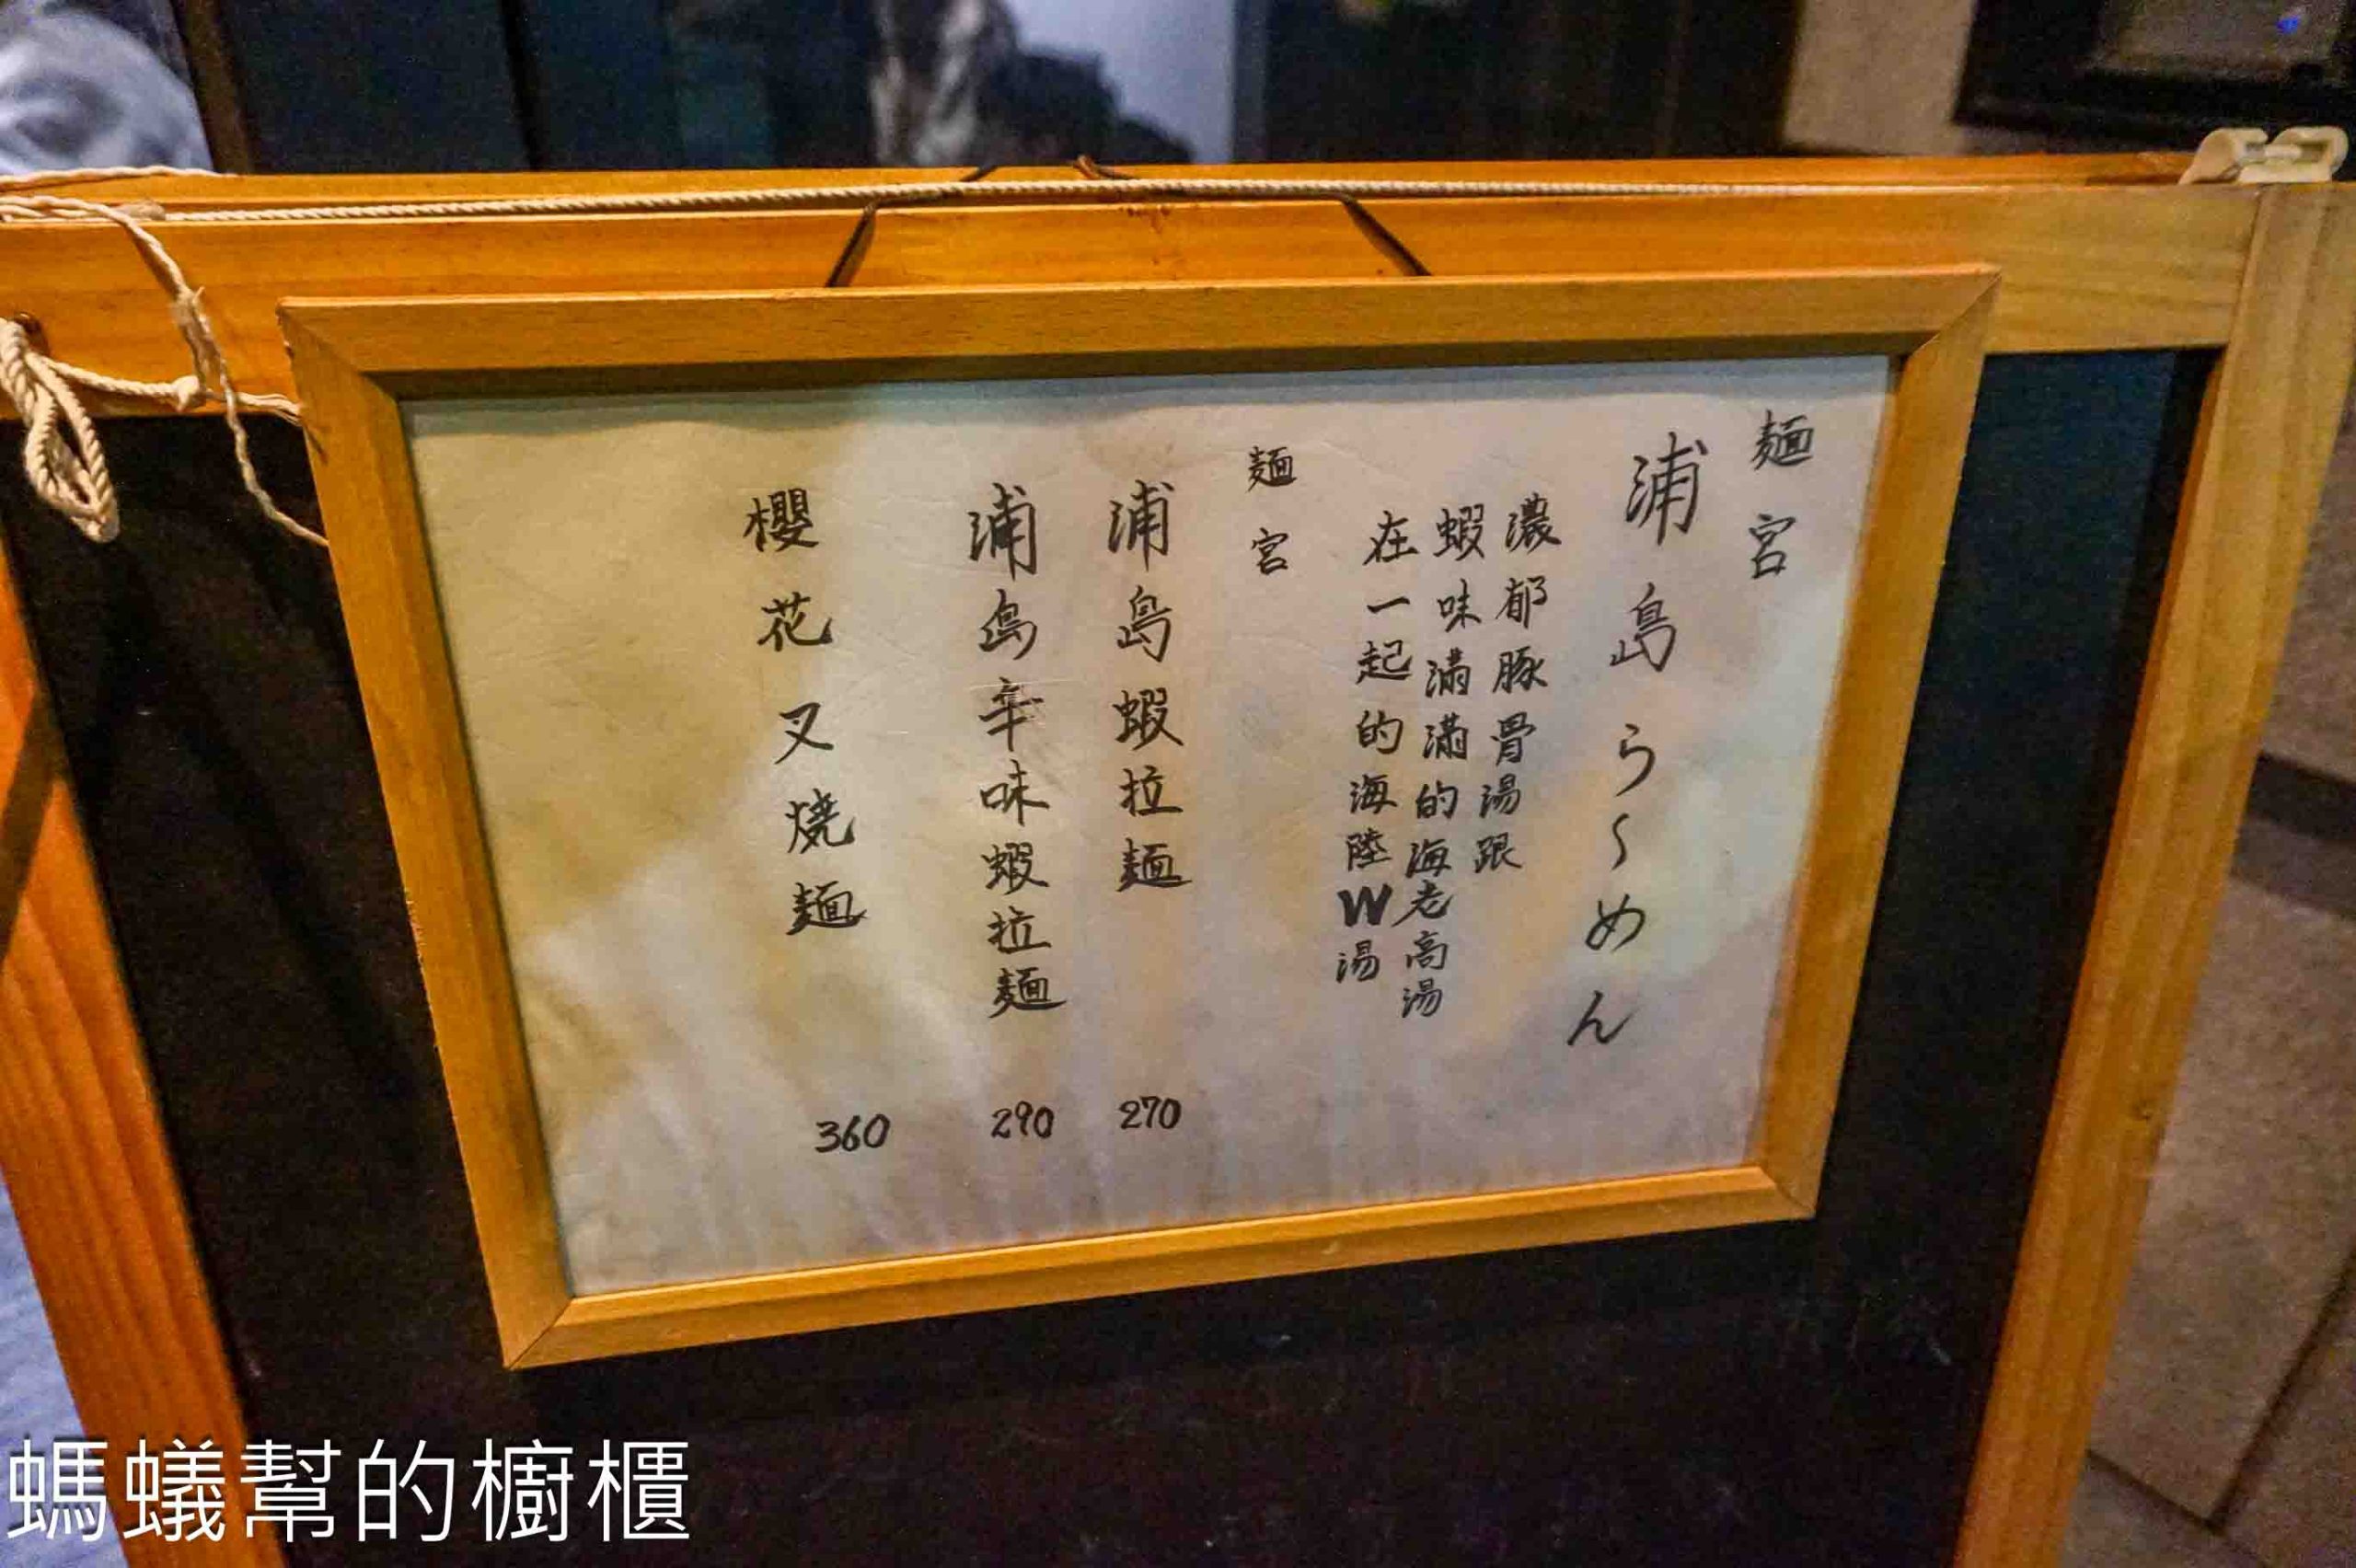 麵宮
浦島ら～めん
濃郁豚骨湯跟
蝦味滿滿的海老高湯
在一起的海陸W湯
麵宮
浦島蝦拉麵 270
浦島辛味蝦拉麵 290
櫻花叉燒麵 360
螞蟻幫的櫥櫃